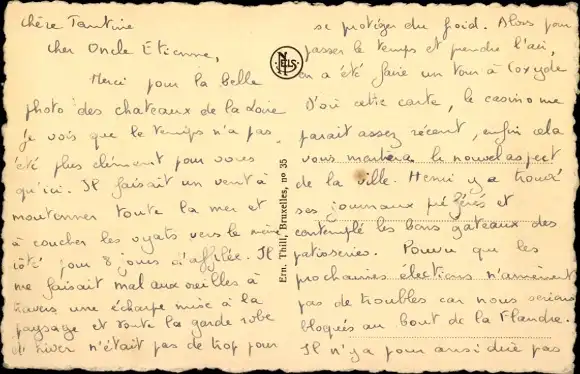 Chère Tantine
Cher Oncle Etienne,
Merci pour la belle
photo des chateaux de la Loire
je vois que le temps n'a pas
été plus clément pour vous
qu'ici. Il faisait un vent à
moutonner toute la mer et
à coucher les oyats vers le même
côté pour 8 jours d'affilée. Il
me faisait mal aux oreilles à
travers une écharpe mise à la
paysage et toute la garde robe
d'hiver n'était pas de trop pour
NELS
Ern. Thill, Bruxelles, no 35
se protéger du froid. Alors pour
passer le temps et prendre l'air,
on a été faire un tour à Coxyde
D'où cette carte, le casino me
parait assez récent, enfin cela
vous montrera le nouvel aspect
de la ville. Henri y a trouvé
ses journaux et
contemplé les bons gateaux des
patisseries. Pourvu que les
prochaines élections n'amènent
pas de troubles car nous serions
bloqués au bout de la Flandre.
Il n'y a pour ainsi dire pas